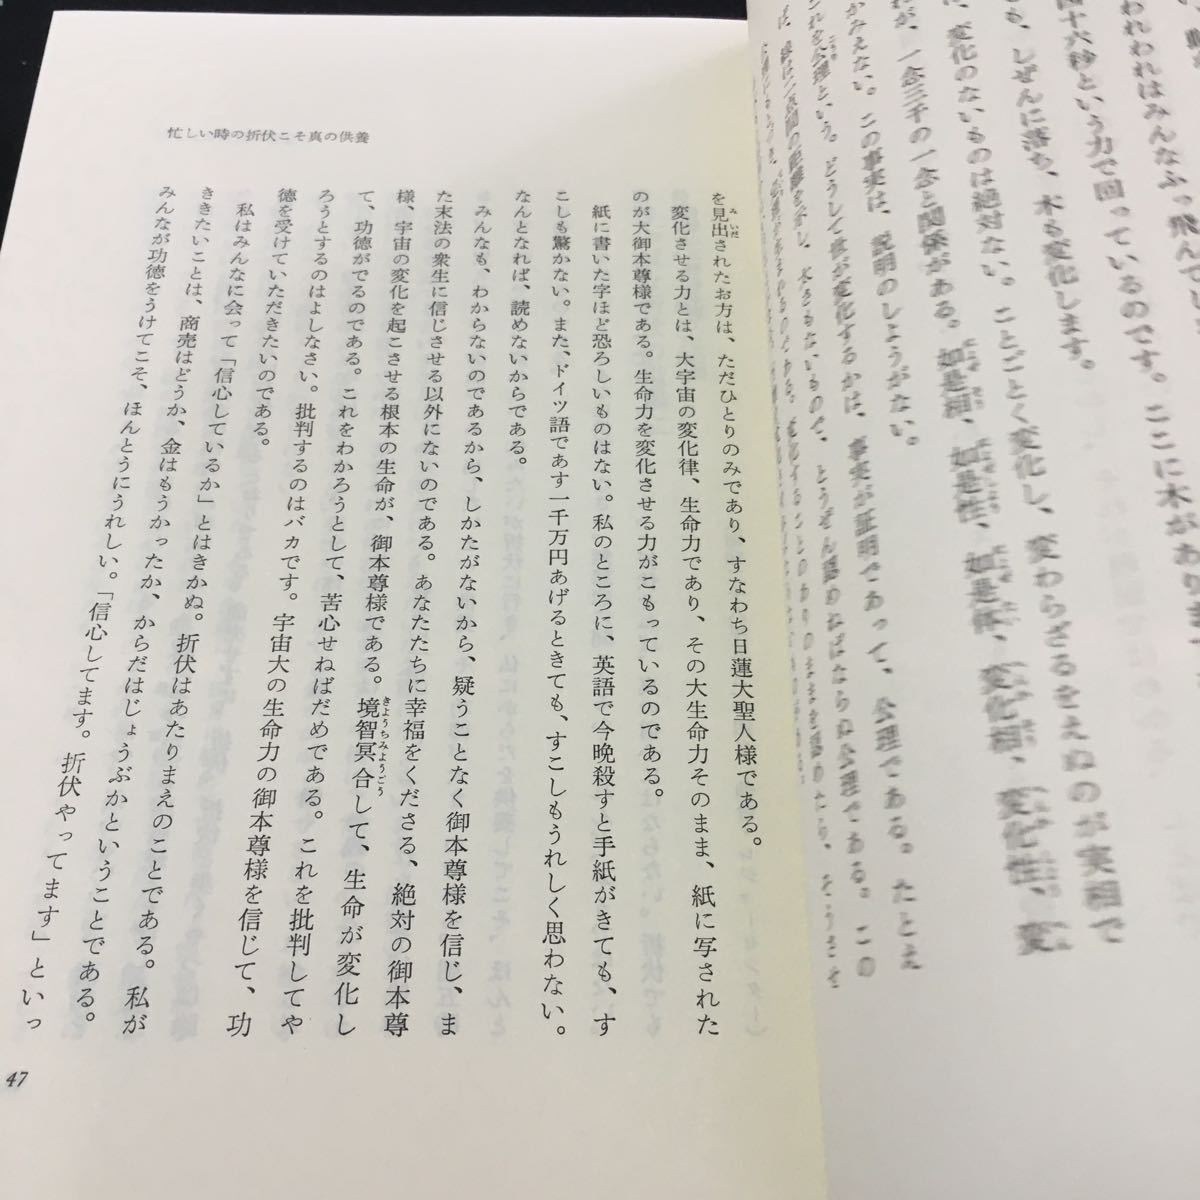 われわれはみんなふっ飛んでい
十六秒という力で回っているのです。ここに木があります
も、しぜんに落ち、木も変化します。
、変化のないものは絶対ない。ことごとく変化し、変わらざるをえぬのが実相で
れが、一念三千の一念と関係がある。如是相、如是性、如是体、変化相、変化性、変
かみえない。この事実は、説明のしようがない。
これを公理という。どうして が変化するかは、事実が証明であって、公理である。たとえ
ば、線は二点間の距離を示し、大きさもないもので、とうぜん認めねばならぬ公理である。この
忙しい時の折伏こそ真の供養
を見出されたお方は、ただひとりのみであり、すなわち日蓮大聖人様である。
変化させる力とは、大宇宙の変化律、生命力であり、その大生命力そのまま、紙に写された
のが大御本尊様である。生命力を変化させる力がこもっているのである。
紙に書いた字ほど恐ろしいものはない。私のところに、英語で今晩殺すと手紙がきても、す
こしも驚かない。また、ドイツ語であす一千万円あげるときても、すこしもうれしく思わない。
なんとなれば、読めないからである。
みんなも、わからないのであるから、しかたがないから、疑うことなく御本尊様を信じ、ま
た末法の衆生に信じさせる以外にないのである。あなたたちに幸福をくださる、絶対の御本尊
様、宇宙の変化を起こさせる根本の生命が、御本尊様である。境智冥合して、生命が変化し
て、功徳がでるのである。これをわかろうとして、苦心せねばだめである。これを批判してや
ろうとするのはよしなさい。批判するのはバカです。宇宙大の生命力の御本尊様を信じて、功
徳を受けていただきたいのである。
私はみんなに会って「信心しているか」とはきかぬ。折伏はあたりまえのことである。私が
ききたいことは、商売はどうか、金はもうかったか、からだはじょうぶかということである。
みんなが功徳をうけてこそ、ほんとうにうれしい。「信心してます。折伏やってます」といっ
47